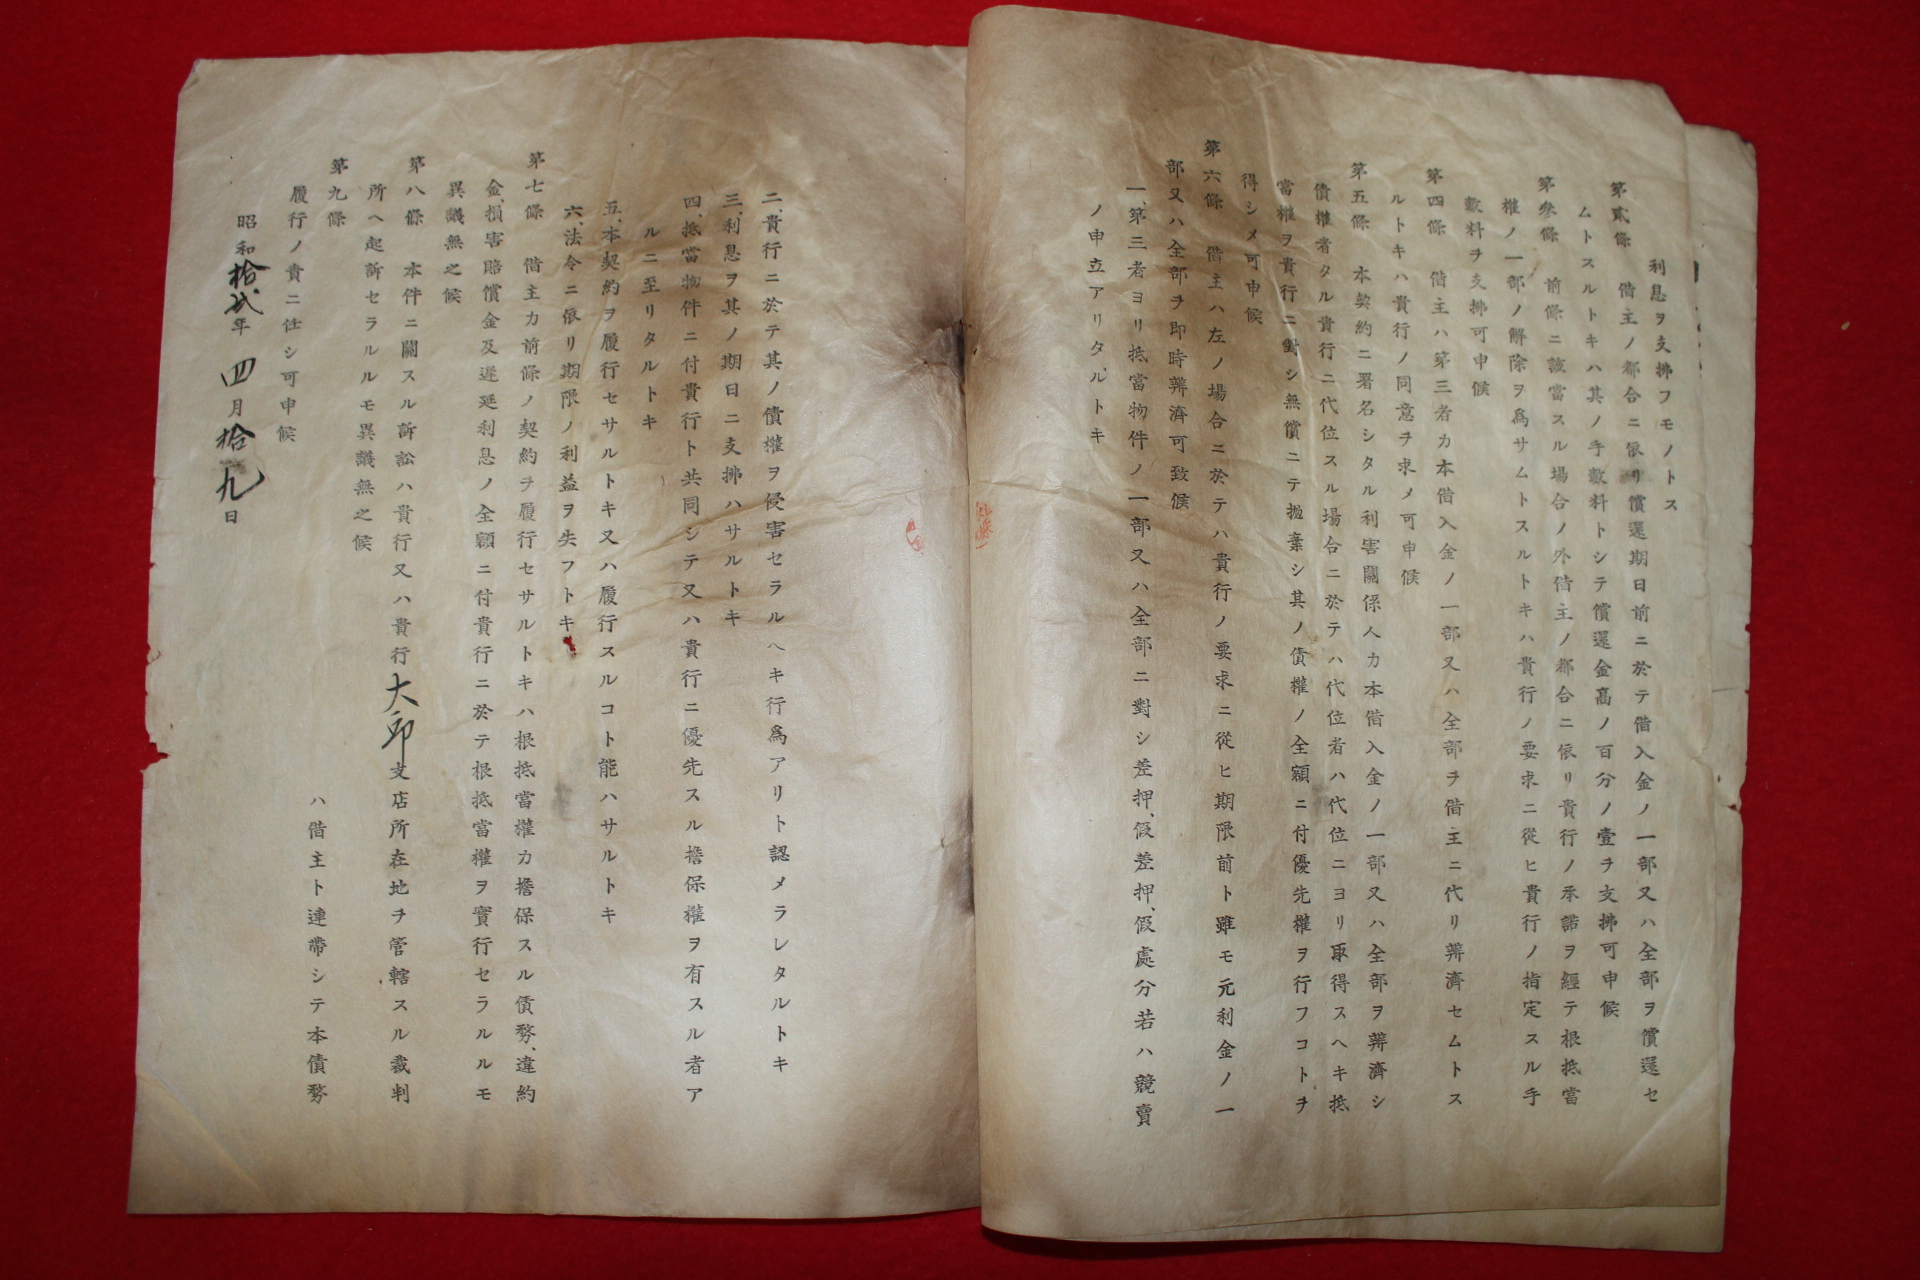 利息ヲ支拂フモノトス
第貳條　借主ノ都合ニ依リ償還期日前ニ於テ借入金ノ一部又ハ全部ヲ償還セ
ムトスルトキハ其ノ手數料トシテ償還金高ノ百分ノ壹ヲ支拂可申候
第參條　前條ニ該當スル場合ノ外借主ノ都合ニ依リ貴行ノ承諾ヲ經テ根抵當
權ノ一部ノ解除ヲ爲サムトスルトキハ貴行ノ要求ニ從ヒ貴行ノ指定スル手
數料ヲ支拂可申候
第四條　借主ハ第三者カ本借入金ノ一部又ハ全部ヲ借主ニ代リ辨濟セムトス
ルトキハ貴行ノ同意ヲ求メ可申候
第五條　本契約ニ署名シタル利害關係人カ本借入金ノ一部又ハ全部ヲ辨濟シ
債權者タル貴行ニ代位スル場合ニ於テハ代位者ハ代位ニヨリ取得スヘキ抵
當權ヲ貴行ニ對シ無償ニテ抛棄シ其ノ債權ノ全額ニ付優先權ヲ行フコトヲ
得シメ可申候
第六條　借主ハ左ノ場合ニ於テハ貴行ノ要求ニ從ヒ期限前ト雖モ元利金ノ一
部又ハ全部ヲ即時辨濟可致候
一、第三者ヨリ抵當物件ノ一部又ハ全部ニ對シ差押、假差押、假處分若ハ競賣
ノ申立アリタルトキ
二、貴行ニ於テ其ノ債權ヲ侵害セラルヘキ行爲アリト認メラレタルトキ
三、利息ヲ其ノ期日ニ支拂ハサルトキ
四、抵當物件ニ付貴行ト共同シテ又ハ貴行ニ優先スル擔保權ヲ有スル者ア
ルニ至リタルトキ
五、本契約ヲ履行セサルトキ又ハ履行スルコト能ハサルトキ
六、法令ニ依リ期限ノ利益ヲ失フトキ
第七條　借主カ前條ノ契約ヲ履行セサルトキハ根抵當權カ擔保スル債務、違約
金、損害賠償金及遲延利息ノ全額ニ付貴行ニ於テ根抵當權ヲ實行セラルルモ
異議無之候
第八條　本件ニ關スル訴訟ハ貴行又ハ貴行大邱支店所在地ヲ管轄スル裁判
所ヘ起訴セラルルモ異議無之候
第九條　ハ借主ト連帶シテ本債務
履行ノ責ニ任シ可申候
昭和拾貳年四月拾九日